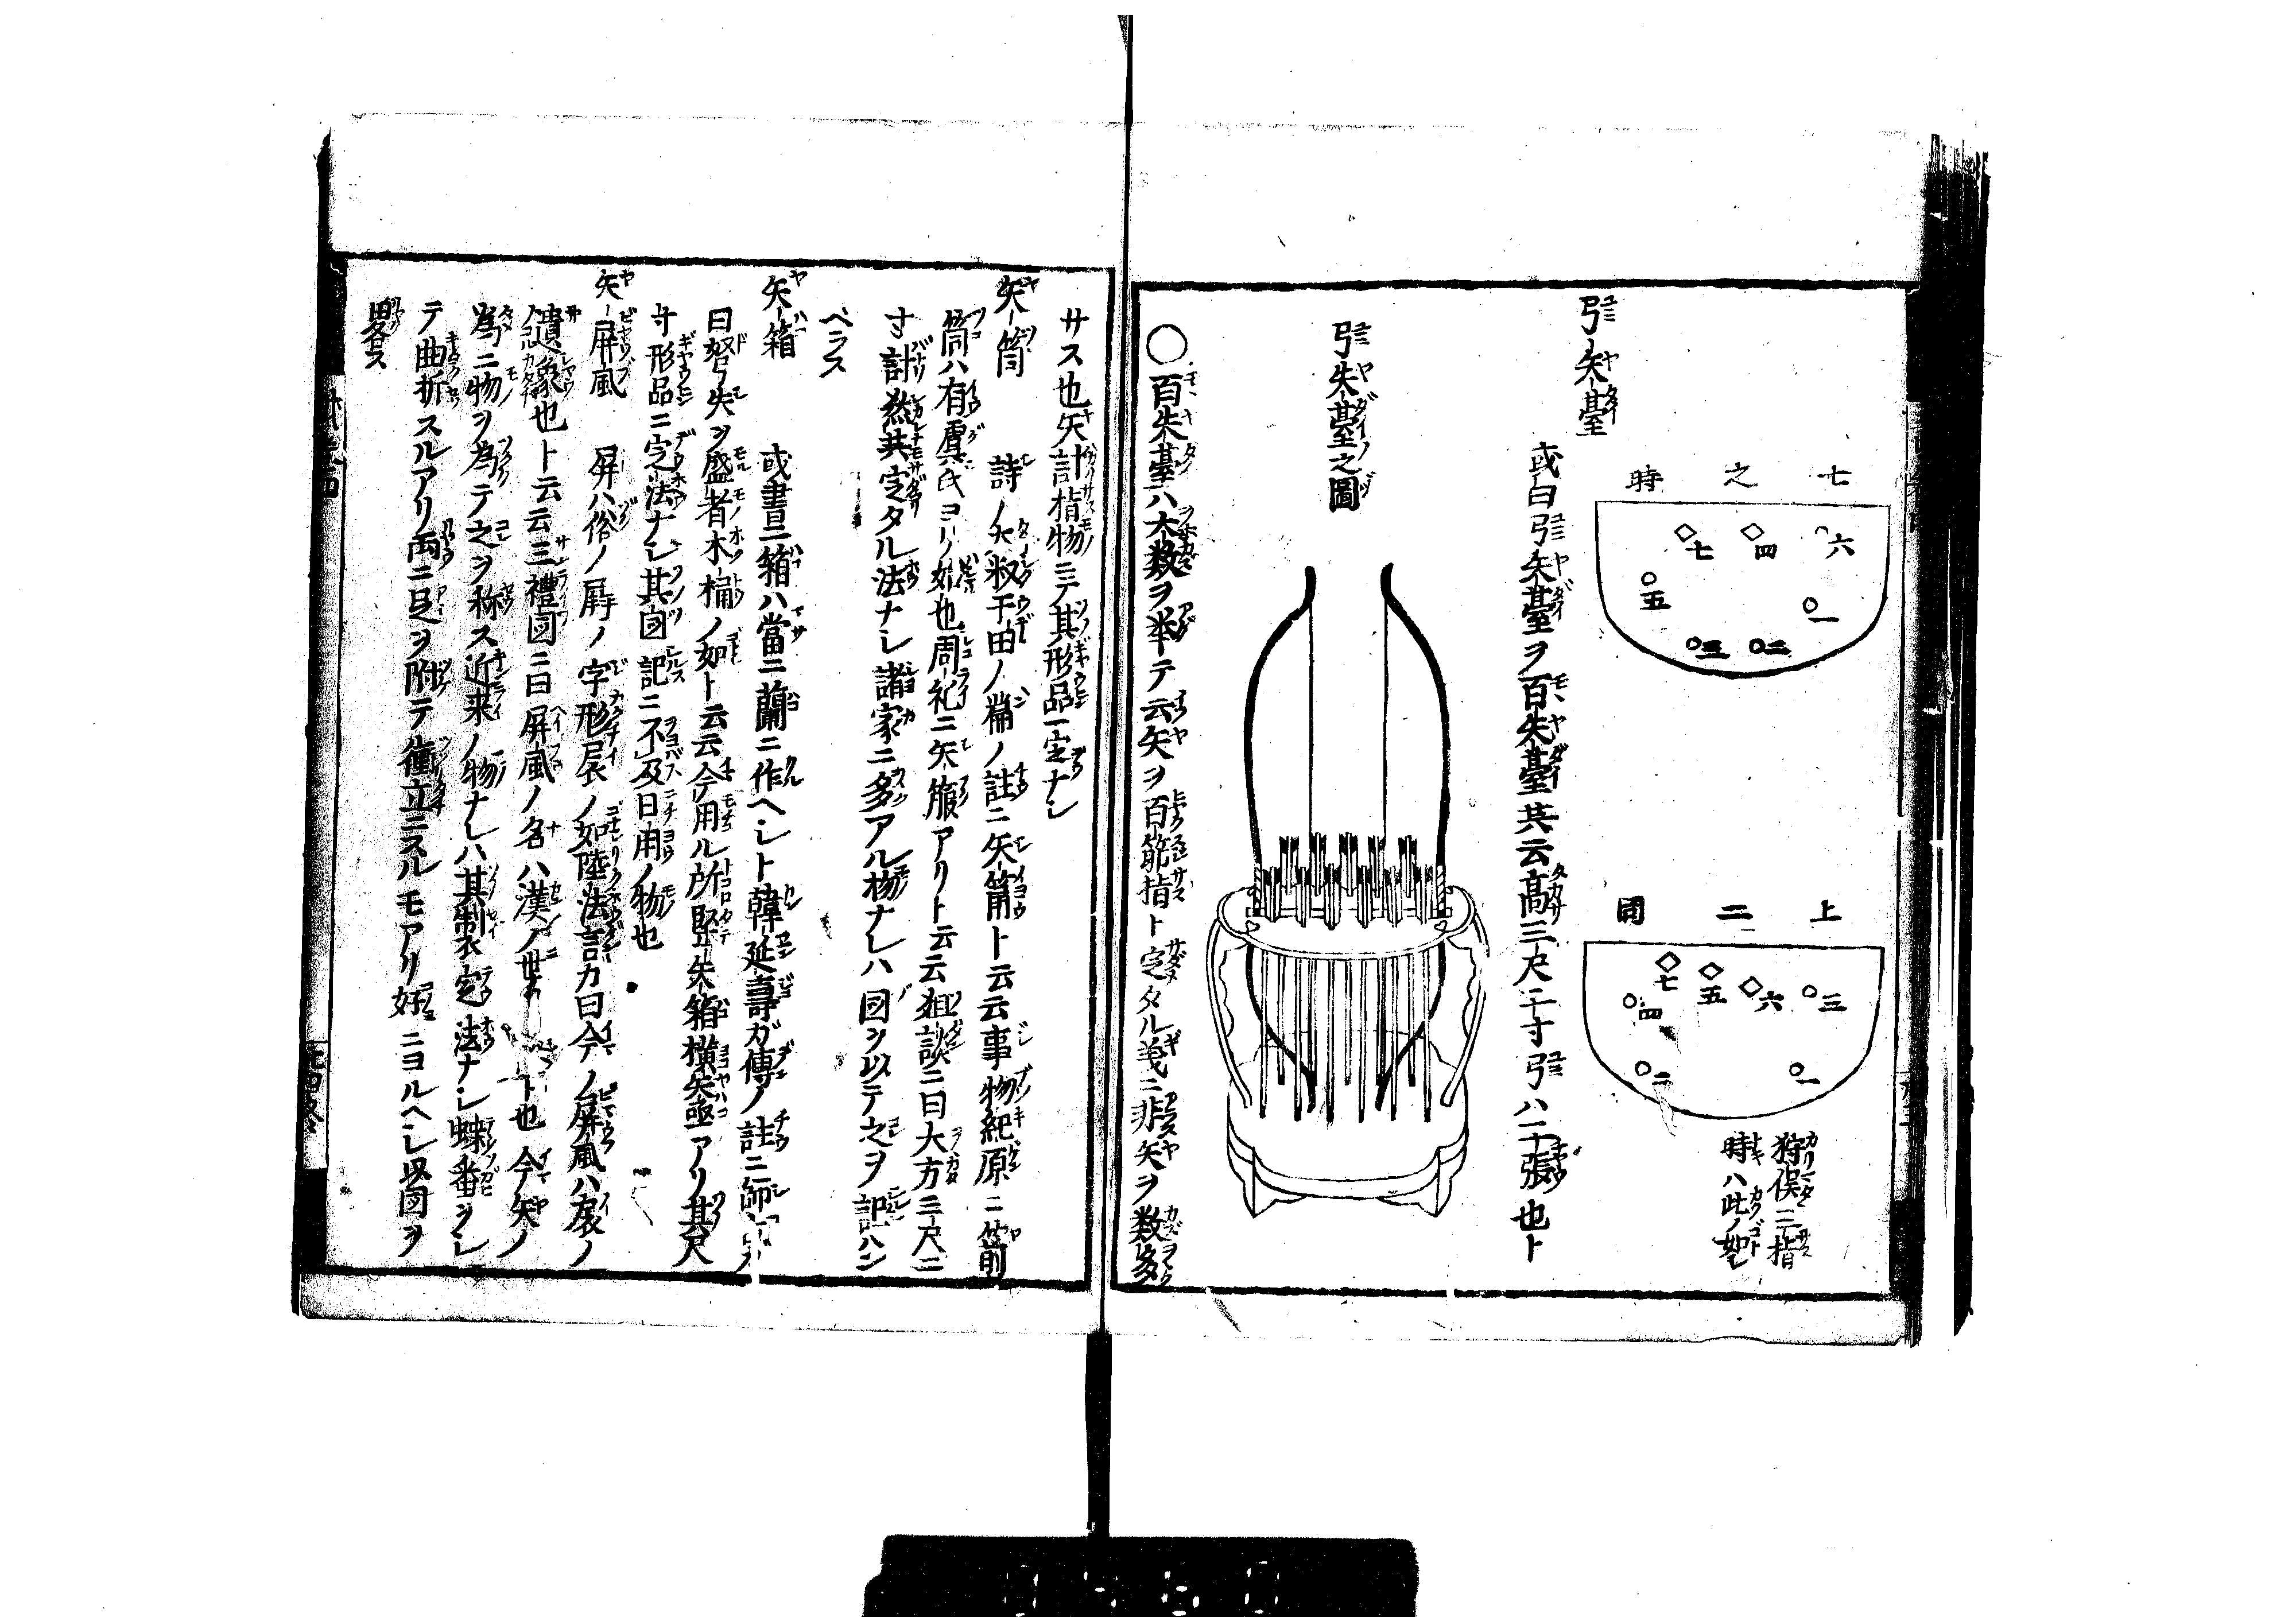 七之時
六
四
七
五
一
三
二
上二同
三
六
五
七
四
二
一
狩俣ニ指
時ハ此ノ如シ
弓矢臺
或曰弓矢臺ヲ百矢臺共云高三尺二寸弓ハ二張也ト
弓矢臺之圖
〇百矢臺ハ大数ヲ挙テ云矢ヲ百筋指ト定タル義ニ非矢ヲ数多
サス也矢計指物ニテ其形品一定ナシ
矢筒 詩ノ大叔于田ノ篇ノ註ニ矢筩ト云云事物紀原ニ箭
筒ハ有虞氏ヨリ始也周礼ニ矢箙アリト云云俎談ニ曰大方三尺二
寸計然共定タル法ナシ諸家ニ多アル物ナレハ図ヲ以テ之ヲ記ハン
ベラス
矢箱 或書ニ箱ハ當ニ蘭ニ作ヘシト韓延壽ガ傳ノ註ニ師
曰弩矢ヲ盛者木桶ノ如ト云云今用ル所竪矢箱横矢函アリ其尺
寸形品ニ定法ナシ其図記ニ不及日用ノ物也
矢屏風 屏ハ俗ノ屏ノ字形扆ノ如陸法言カ曰今ノ屏風ハ扆ノ
遺象也ト云云三禮図ニ曰屏風ノ名ハ漢ノ世
ト也今矢ノ
為ニ物ヲ為テ之ヲ称ス近来ノ物ナレハ其制衣定法ナシ蝶番ヲシ
テ曲折スルアリ両ニ足ヲ附テ衝立ニスルモアリ好ニヨルヘシ図ヲ
畧ス